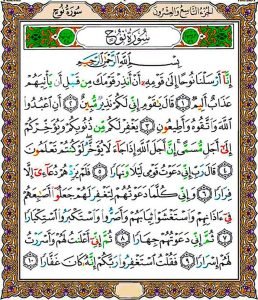 سُورَةُ نُوحٍ الجُزْءُ التَّاسِعُ وَالعِشْرُونَ
سُورَةُ نُوحٍ
بِسْمِ ٱللَّهِ ٱلرَّحْمَٰنِ ٱلرَّحِيمِ
إِنَّآ أَرْسَلْنَا نُوحًا إِلَىٰ قَوْمِهِۦٓ أَنْ أَنذِرْ قَوْمَكَ مِن قَبْلِ أَن يَأْتِيَهُمْ
عَذَابٌ أَلِيمٌ ١ قَالَ يَٰقَوْمِ إِنِّى لَكُمْ نَذِيرٌ مُّبِينٌ ٢ أَنِ ٱعْبُدُوا۟
ٱللَّهَ وَٱتَّقُوهُ وَأَطِيعُونِ ٣ يَغْفِرْ لَكُم مِّن ذُنُوبِكُمْ وَيُؤَخِّرْكُمْ
إِلَىٰٓ أَجَلٍ مُّسَمًّى إِنَّ أَجَلَ ٱللَّهِ إِذَا جَآءَ لَا يُؤَخَّرُ لَوْ كُنتُمْ تَعْلَمُونَ
٤ قَالَ رَبِّ إِنِّى دَعَوْتُ قَوْمِى لَيْلًا وَنَهَارًا ٥ فَلَمْ يَزِدْهُمْ دُعَآءِىٓ إِلَّا
فِرَارًا ٦ وَإِنِّى كُلَّمَا دَعَوْتُهُمْ لِتَغْفِرَ لَهُمْ جَعَلُوٓا۟ أَصَٰبِعَهُمْ
فِىٓ ءَاذَانِهِمْ وَٱسْتَغْشَوْا۟ ثِيَابَهُمْ وَأَصَرُّوا۟ وَٱسْتَكْبَرُوا۟ ٱسْتِكْبَارًا
٧ ثُمَّ إِنِّى دَعَوْتُهُمْ جِهَارًا ٨ ثُمَّ إِنِّىٓ أَعْلَنتُ لَهُمْ وَأَسْرَرْتُ
لَهُمْ إِسْرَارًا ٩ فَقُلْتُ ٱسْتَغْفِرُوا۟ رَبَّكُمْ إِنَّهُۥ كَانَ غَفَّارًا ١٠